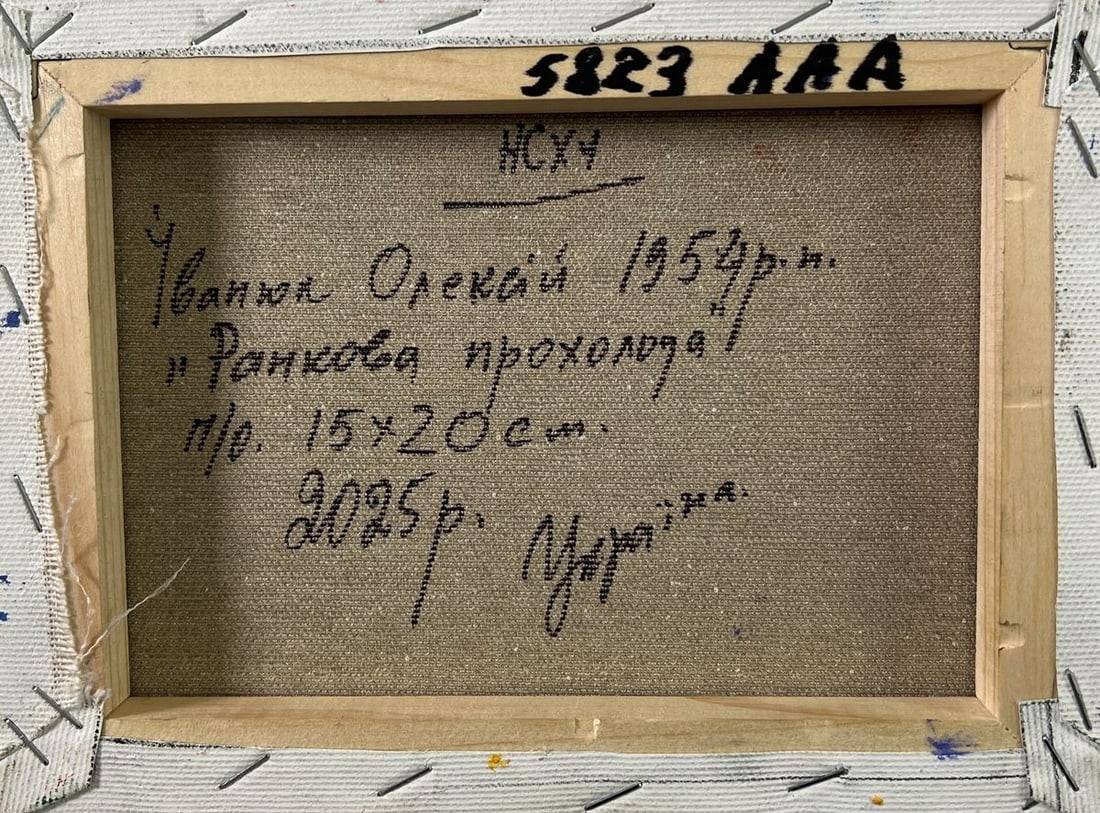 5823 ААА
НСХУ
Іванюк Олексій 1954р.н.
„Ранкова прохолода"
п/о. 15х20 см.
2025р. Україна.